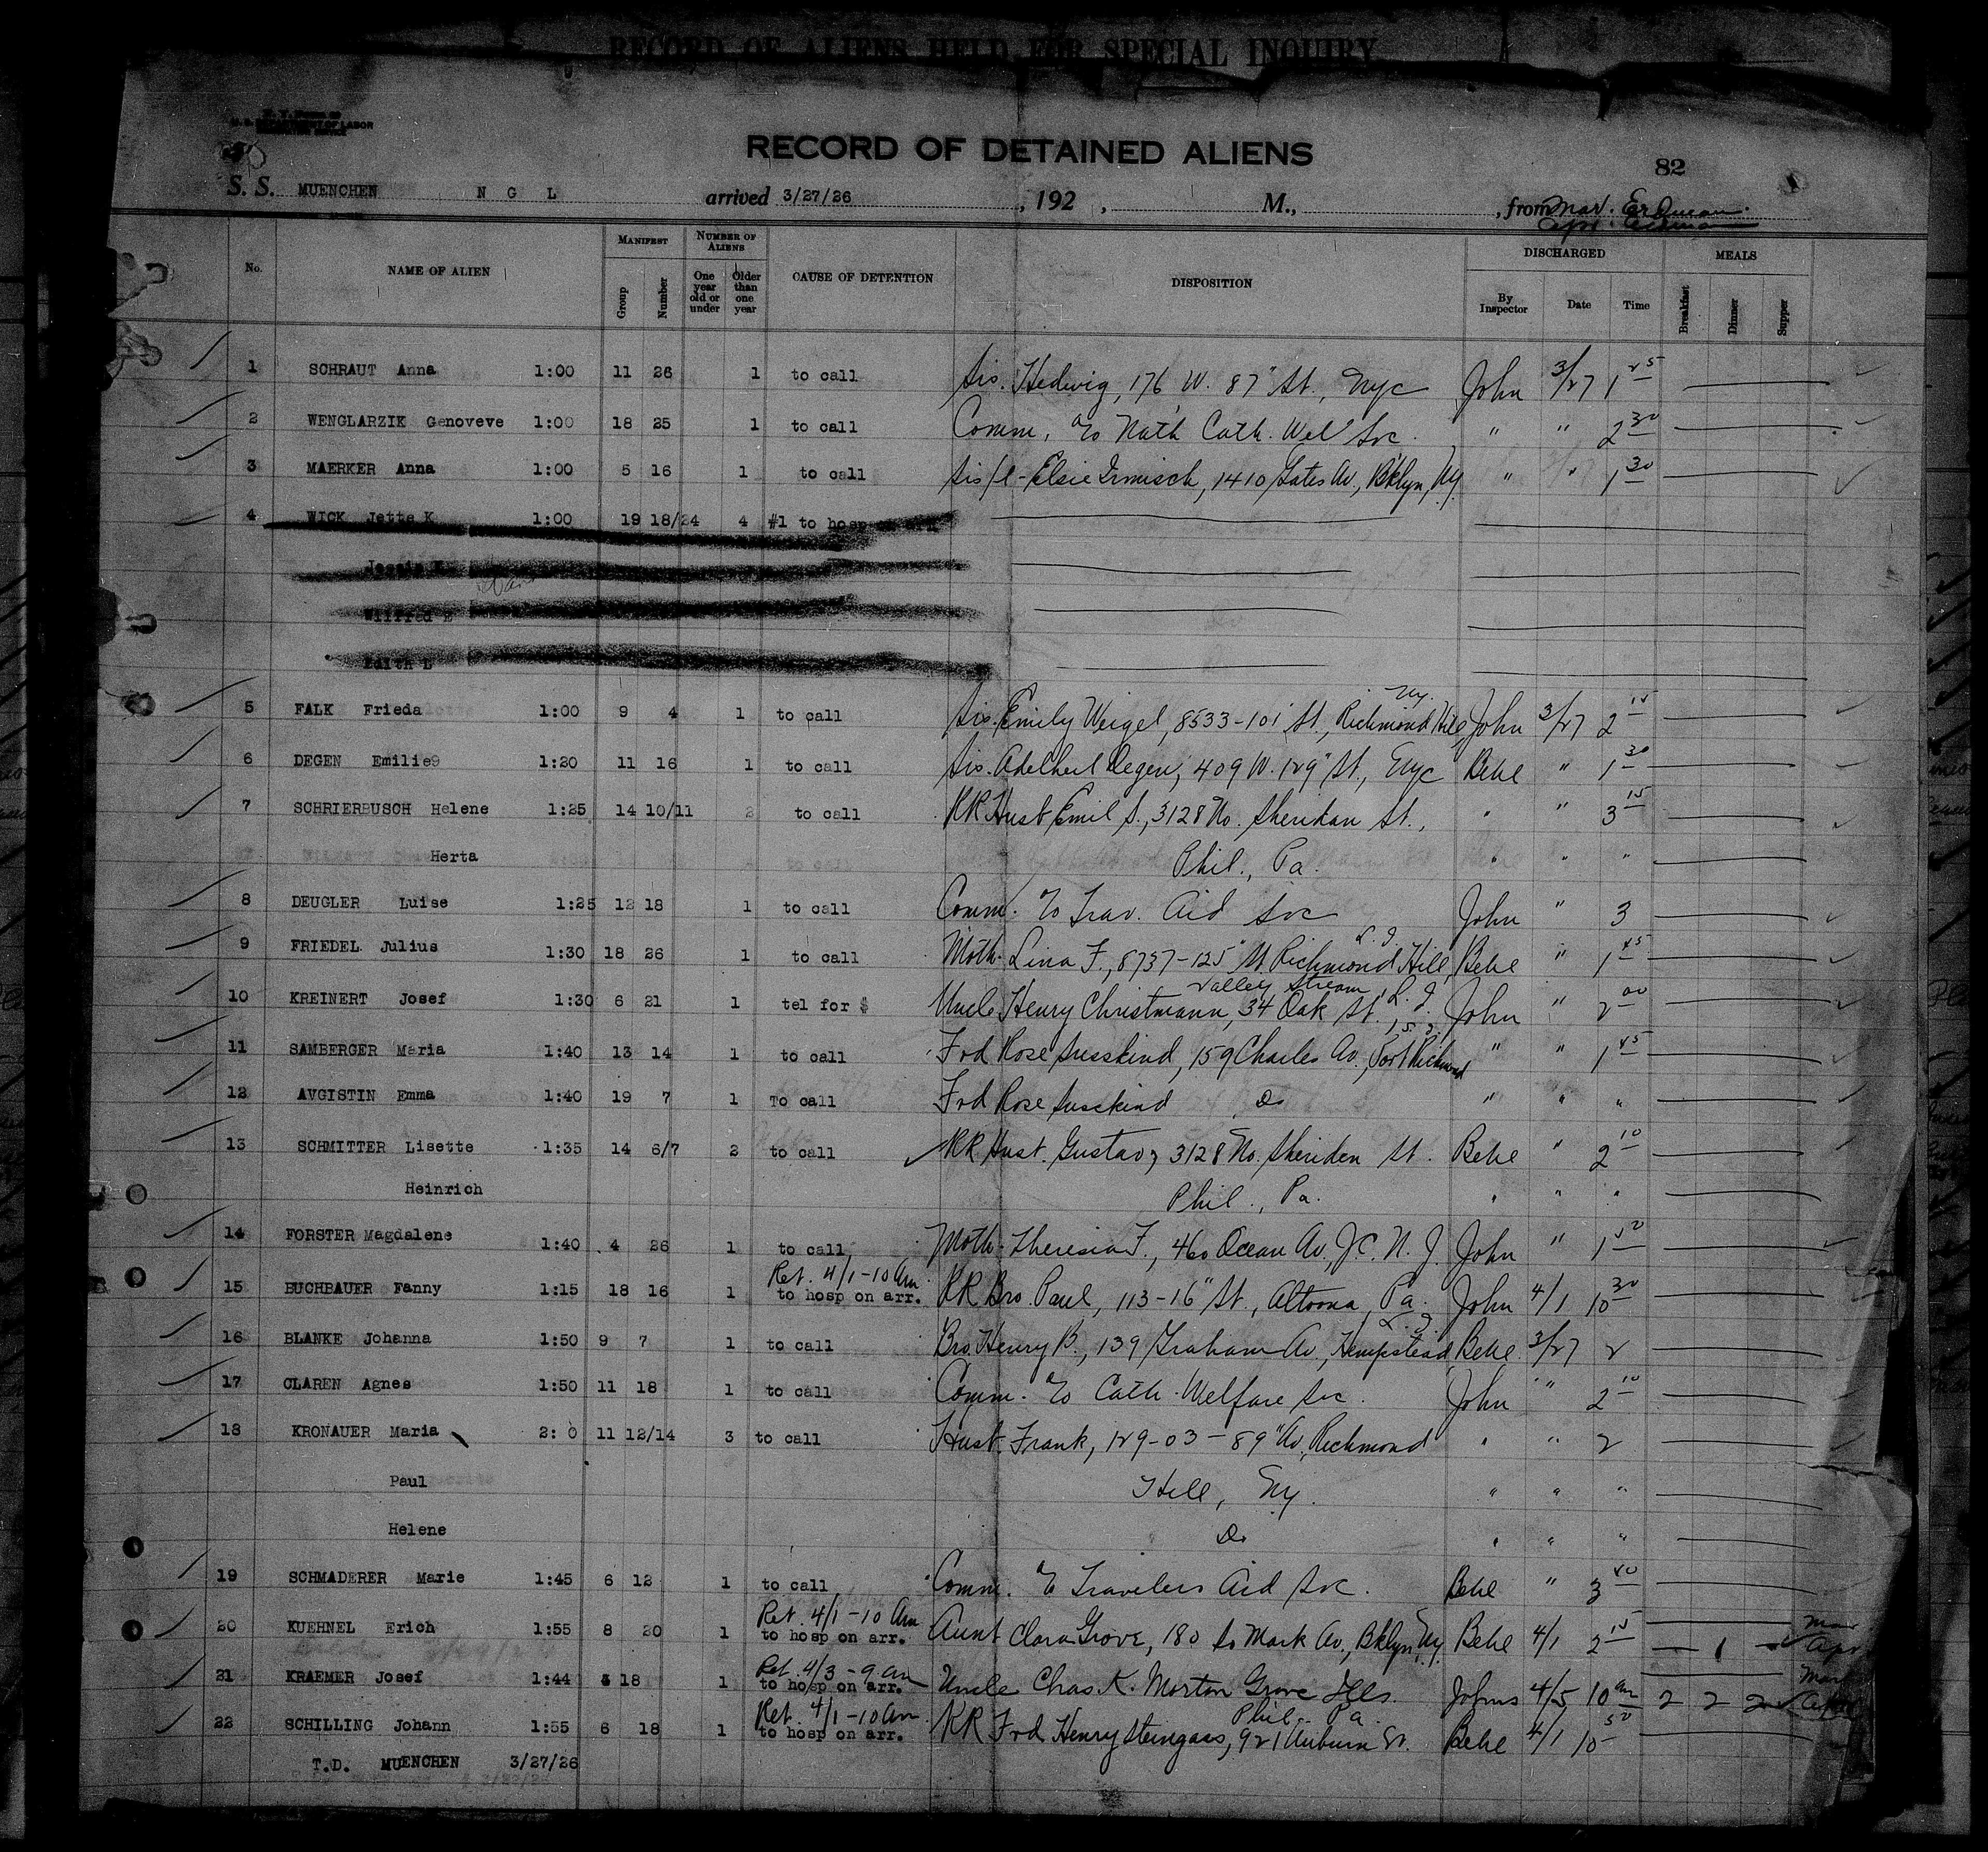 RECORD OF ALIENS HELD FOR SPECIAL INQUIRY
RECORD OF DETAINED ALIENS
82
S. S. MUENCHEN N G L arrived 3/27/26 , 192 , M., , from Mar. Erdman
No. NAME OF ALIEN MANIFEST Group Number NUMBER OF ALIENS One year old or under Older than one year CAUSE OF DETENTION DISPOSITION DISCHARGED By Inspector Date Time MEALS Breakfast Dinner Supper
1 SCHRAUT Anna 1:00 11 26 1 to call Sis. Hedwig, 176 W. 87" St., Nyc John 3/27 1 45
2 WENGLARZIK Genoveve 1:00 18 25 1 to call Comm. to Nat'l Cath. Wel Soc. " " 2 30
3 MAERKER Anna 1:00 5 16 1 to call Sis/l - Elsie Irmisch, 1410 Gates Av., Bklyn, Ny. " " 1 30
4 WICK Jette K 1:00 19 18/24 4 #1 to hosp on arr
Jessie
Wilfred E
Edith L
5 FALK Frieda 1:00 9 4 1 to call Sis. Emily Weigel, 8533-101 St., Richmond Hill, Ny. John 3/27 2 15
6 DEGEN Emilie 1:20 11 16 1 to call Sis. Adelheid Degen, 409 W. 129" St., Nyc Behe " 1 30
7 SCHRIERBUSCH Helene 1:25 14 10/11 2 to call RR Husb Emil S., 3128 No. Sheridan St., " " 3 15
Herta Phil., Pa. " " "
8 DEUGLER Luise 1:25 12 18 1 to call Comm. to Trav. Aid Soc John " 3
9 FRIEDEL Julius 1:30 18 26 1 to call Moth. Lina F., 8737-125" St Richmond Hill, L.I. Behe " 1 45
10 KREINERT Josef 1:30 6 21 1 tel for $ Uncle Henry Christmann, 34 Oak St., Valley Stream, L.I. John " 2 00
11 SAMBERGER Maria 1:40 13 14 1 to call Frd Rose Susskind, 159 Charles Av., Port Richmond S.I. " " 1 45
12 AVGISTIN Emma 1:40 19 7 1 To call Frd Rose Susskind Do " " "
13 SCHMITTER Lisette 1:35 14 6/7 2 to call RR Husb. Gustav, 3128 No. Sheriden St. Behe " 2 10
Heinrich Phil., Pa. " " "
14 FORSTER Magdalene 1:40 4 26 1 to call Moth. Theresia F., 460 Ocean Av, J.C. N.J. John " 1 50
Ret. 4/1-10 Am.
15 BUCHBAUER Fanny 1:15 18 16 1 to hosp on arr. RR Bro. Paul, 113-16" St., Altoona, Pa. John 4/1 10 30
16 BLANKE Johanna 1:50 9 7 1 to call Bro. Henry B., 139 Graham Av., Hempstead, L.I. Behe 3/27 2
17 CLAREN Agnes 1:50 11 18 1 to call Comm. to Cath. Welfare Soc. John " 2 10
18 KRONAUER Maria 2: 0 11 12/14 3 to call Husb. Frank, 129-03-89" Av, Richmond " " 2
Paul Hill, Ny. " " "
Helene Do " " "
19 SCHMADERER Marie 1:45 6 12 1 to call Comm. to Travelers Aid Soc. Behe " 3 40
Ret. 4/1-10 Am
20 KUEHNEL Erich 1:55 8 20 1 to hosp on arr. Aunt Clara Grove, 180 St Mark Av, Bklyn, Ny. Behe 4/1 2 15 — 1 — Mar Apr
Ret. 4/3-9 am
21 KRAEMER Josef 1:44 18 1 to hosp on arr. Uncle Chas K. Morton Grove Ills. Johns 4/5 10 am 2 2 2 Mar
Ret. 4/1-10 Am.
22 SCHILLING Johann 1:55 6 18 1 to hosp on arr. RR Frd Henry Steingass, 921 Auburn St. Phil. Pa. Behe 4/1 10 50
T.D. MUENCHEN 3/27/26